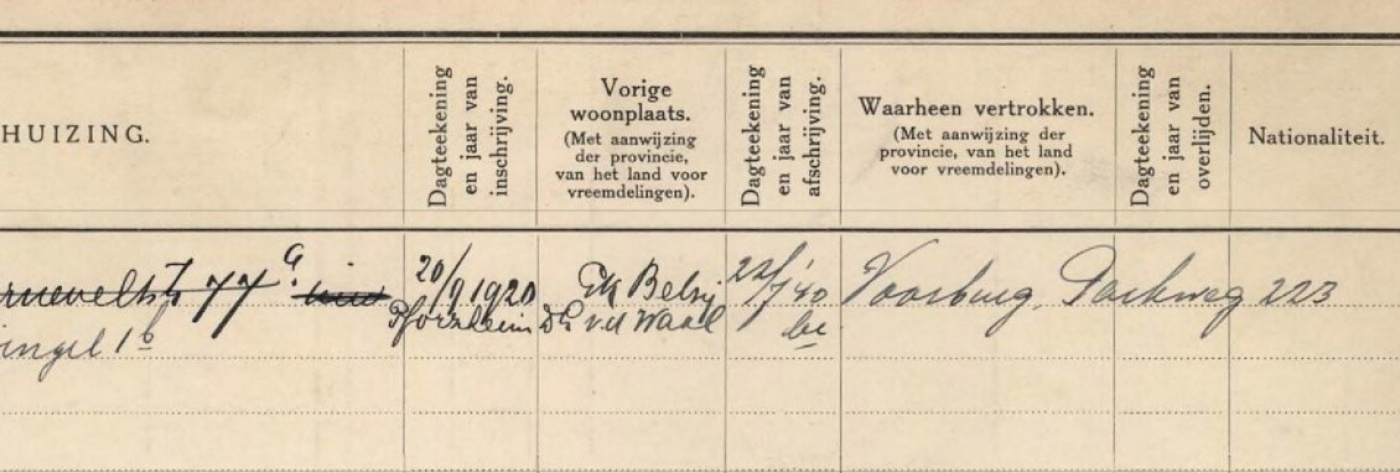 HUIZING.
Dagteekening
en jaar van
inschrijving.
Vorige
woonplaats.
(Met aanwijzing
der provincie,
van het land voor
vreemdelingen).
Dagteekening
en jaar van
afschrijving.
Waarheen vertrokken.
(Met aanwijzing der
provincie, van het land
voor vreemdelingen).
Dagteekening
en jaar van
overlijden.
Nationaliteit.
77 a
20/9 1920
22/7 '40
Voorburg, Parkweg 223
Pforzheim
v.d. Waal
ingel 1b